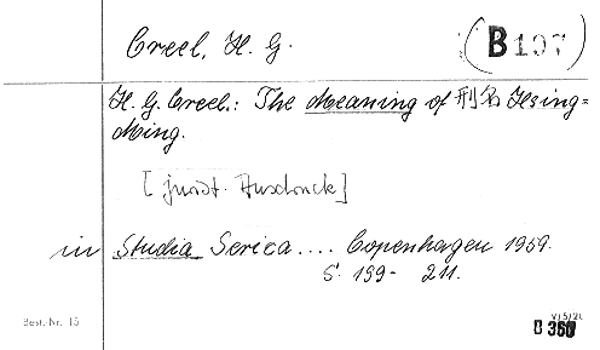 Creel, H. G.
(B 107)
H. G. Creel.: The Meaning of 刑名 Hsing=
Ming.
[jurist. Ausdruck]
in Studia Serica .... Copenhagen 1959.
S. 199- 211.
Best.-Nr. 15
V/5/2L
B 360